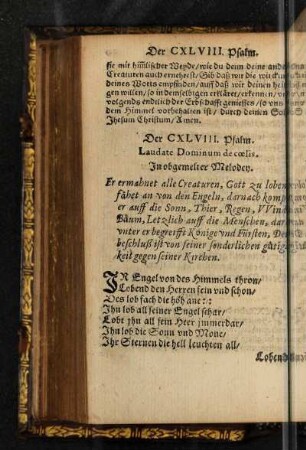 Der CXLVIII. Psalm.
sie mit himlischer Weyde/ wie du denn deine ande
Creaturen auch ernehrest/ Gib daß wir die wirckun
deines Worts empfinden/ auff daß wir deinen hei
gen willen/ so in demselbigen erkläret/ erkennen/
volgends endtlich der Erbschafft geniessen/ so vns
dem Himmel vorbehalten ist/ durch deinen Sohn
Jhesum Christum/ Amen.
Der CXLVIII. Psalm.
Laudate Dominum de cœlis.
In obgemelter Melodey.
Er ermahnet alle Creaturen, Gott zu loben
fähet an von den Engeln, darnach kom
er auff die Sonn, Thier, Regen, VVind
Bäum, Letzlich auff die Menschen, dar
vnter er begreifft Könige vnd Fürsten, De
beschluß ist von seiner sonderlichen gütig
keit gegen seiner Kirchen.
IR Engel von des Himmels thron/
Lobend den Herren fein vnd schon/
Des lob sach die höh ane :|:
Ihn lob all seiner Engel schar/
Lobt jhn all sein Heer jmmerdar/
Ihn lob die Sonn vnd Mone/
Ihr Sternen die hell leuchten all/
Lobend